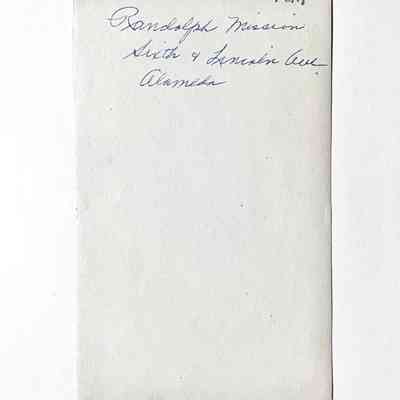 Randolph Mission
Sixth & Lincoln Ave.
Alameda